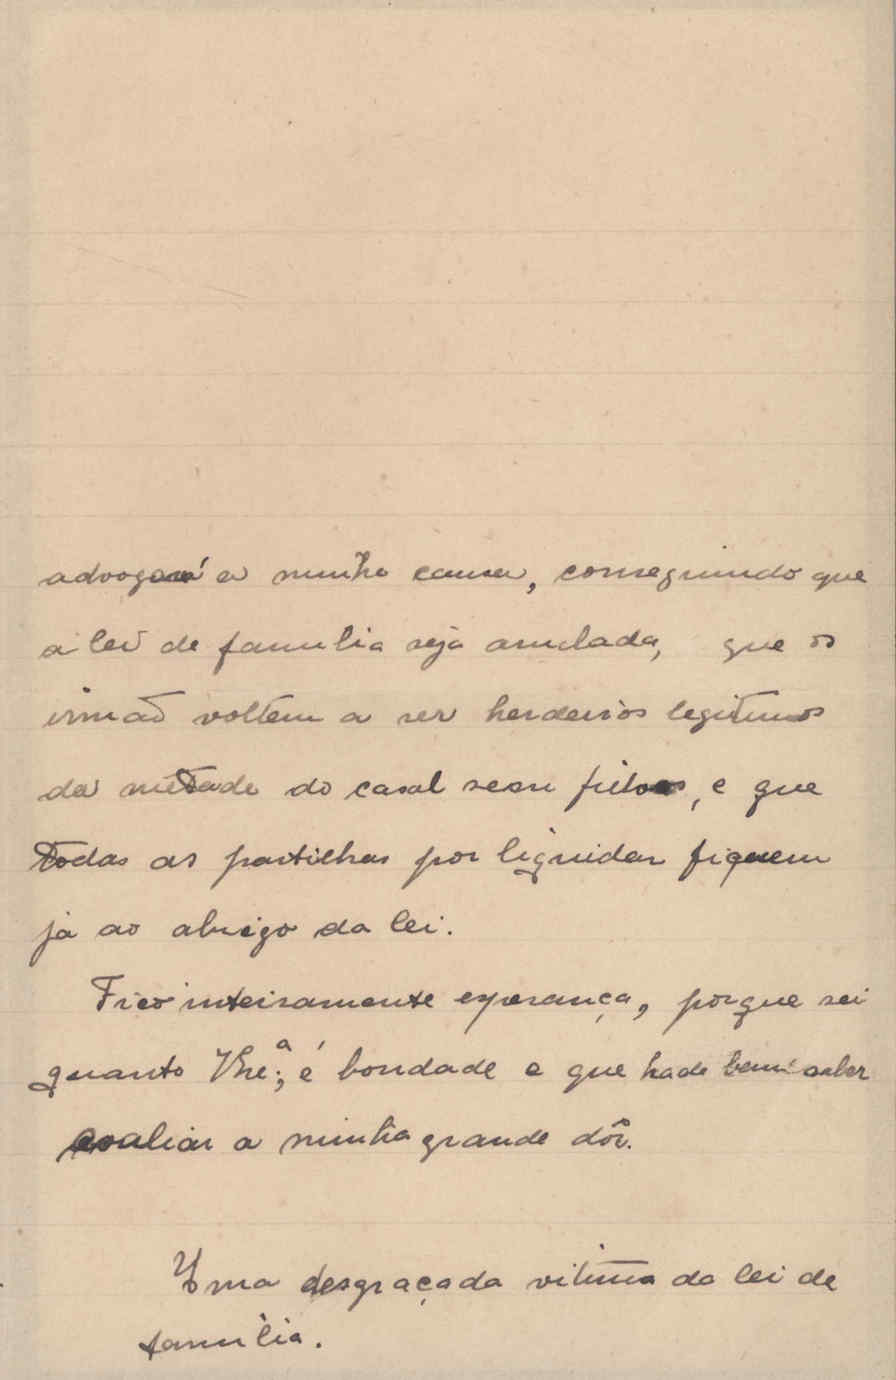 advogará a minha causa, conseguindo que
a lei de familia seja anulada, que os
irmãos voltem a ser herdeiros legitimos
da metade do casal sem filhos, e que
todas as partilhas por liquidar fiquem
já ao abrigo da lei.
Fico inteiramente esperança, porque sei
quanto V. Exª; é bondade e que hade bem saber
avaliar a minha grande dôr.
Uma desgraçada vitima da lei de
familia.